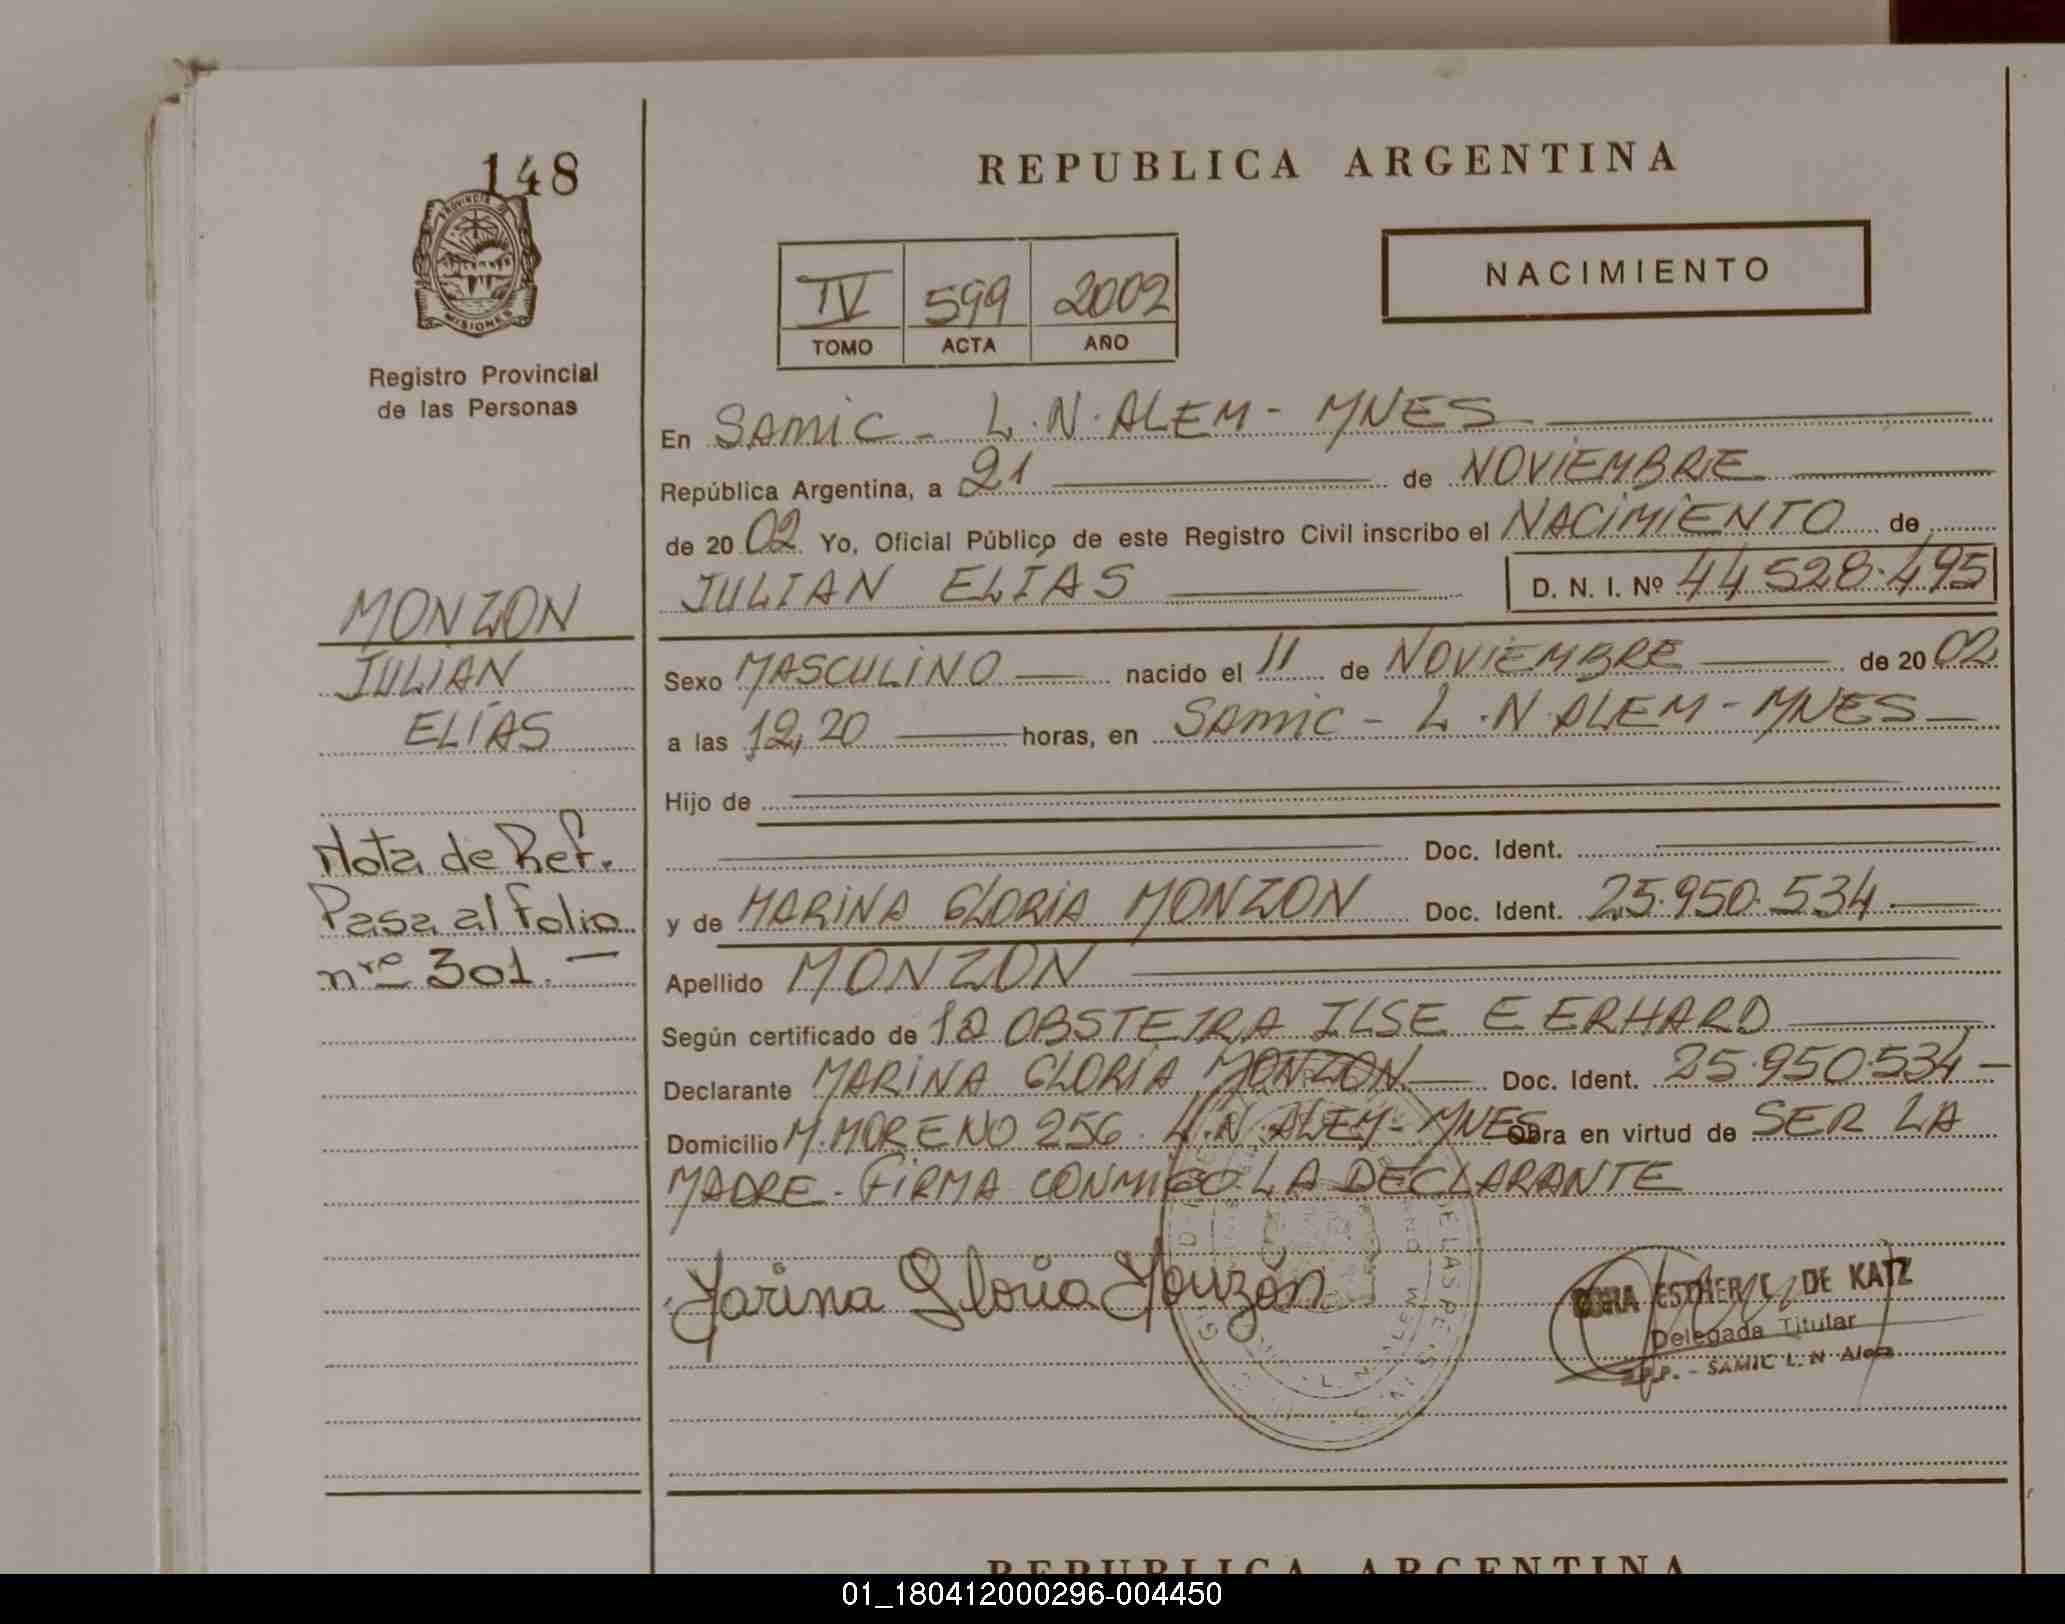 148
PROVINCIA DE
MISIONES
Registro Provincial
de las Personas
MONZON
JULIÁN
ELÍAS
Nota de Ref.
Pasa al folio
nro 301.—
REPUBLICA ARGENTINA
IV 599 2002
TOMO ACTA AÑO
NACIMIENTO
En SAMIC - L.N. ALEM - MNES
República Argentina, a 21 de NOVIEMBRE
de 2002 Yo, Oficial Público de este Registro Civil inscribo el NACIMIENTO de
JULIAN ELÍAS D. N. I. Nº 44.528.495
Sexo MASCULINO nacido el 11 de NOVIEMBRE de 2002
a las 12,20 horas, en SAMIC - L.N. ALEM - MNES
Hijo de
Doc. Ident.
y de MARINA GLORIA MONZON Doc. Ident. 25.950.534
Apellido MONZON
Según certificado de OBSTETRA ILSE E ERHARD
Declarante MARINA GLORIA MONZON Doc. Ident. 25.950.534
Domicilio M. MORENO 256 L.N. ALEM - MNES Obra en virtud de SER LA
MADRE - FIRMA CONMIGO LA DECLARANTE
Marina Gloria Monzón
DORA ESTHER DE KATZ
Delegada Titular
R.P.P. - SAMIC L. N. Alem
REPUBLICA ARGENTINA
01_180412000296-004450